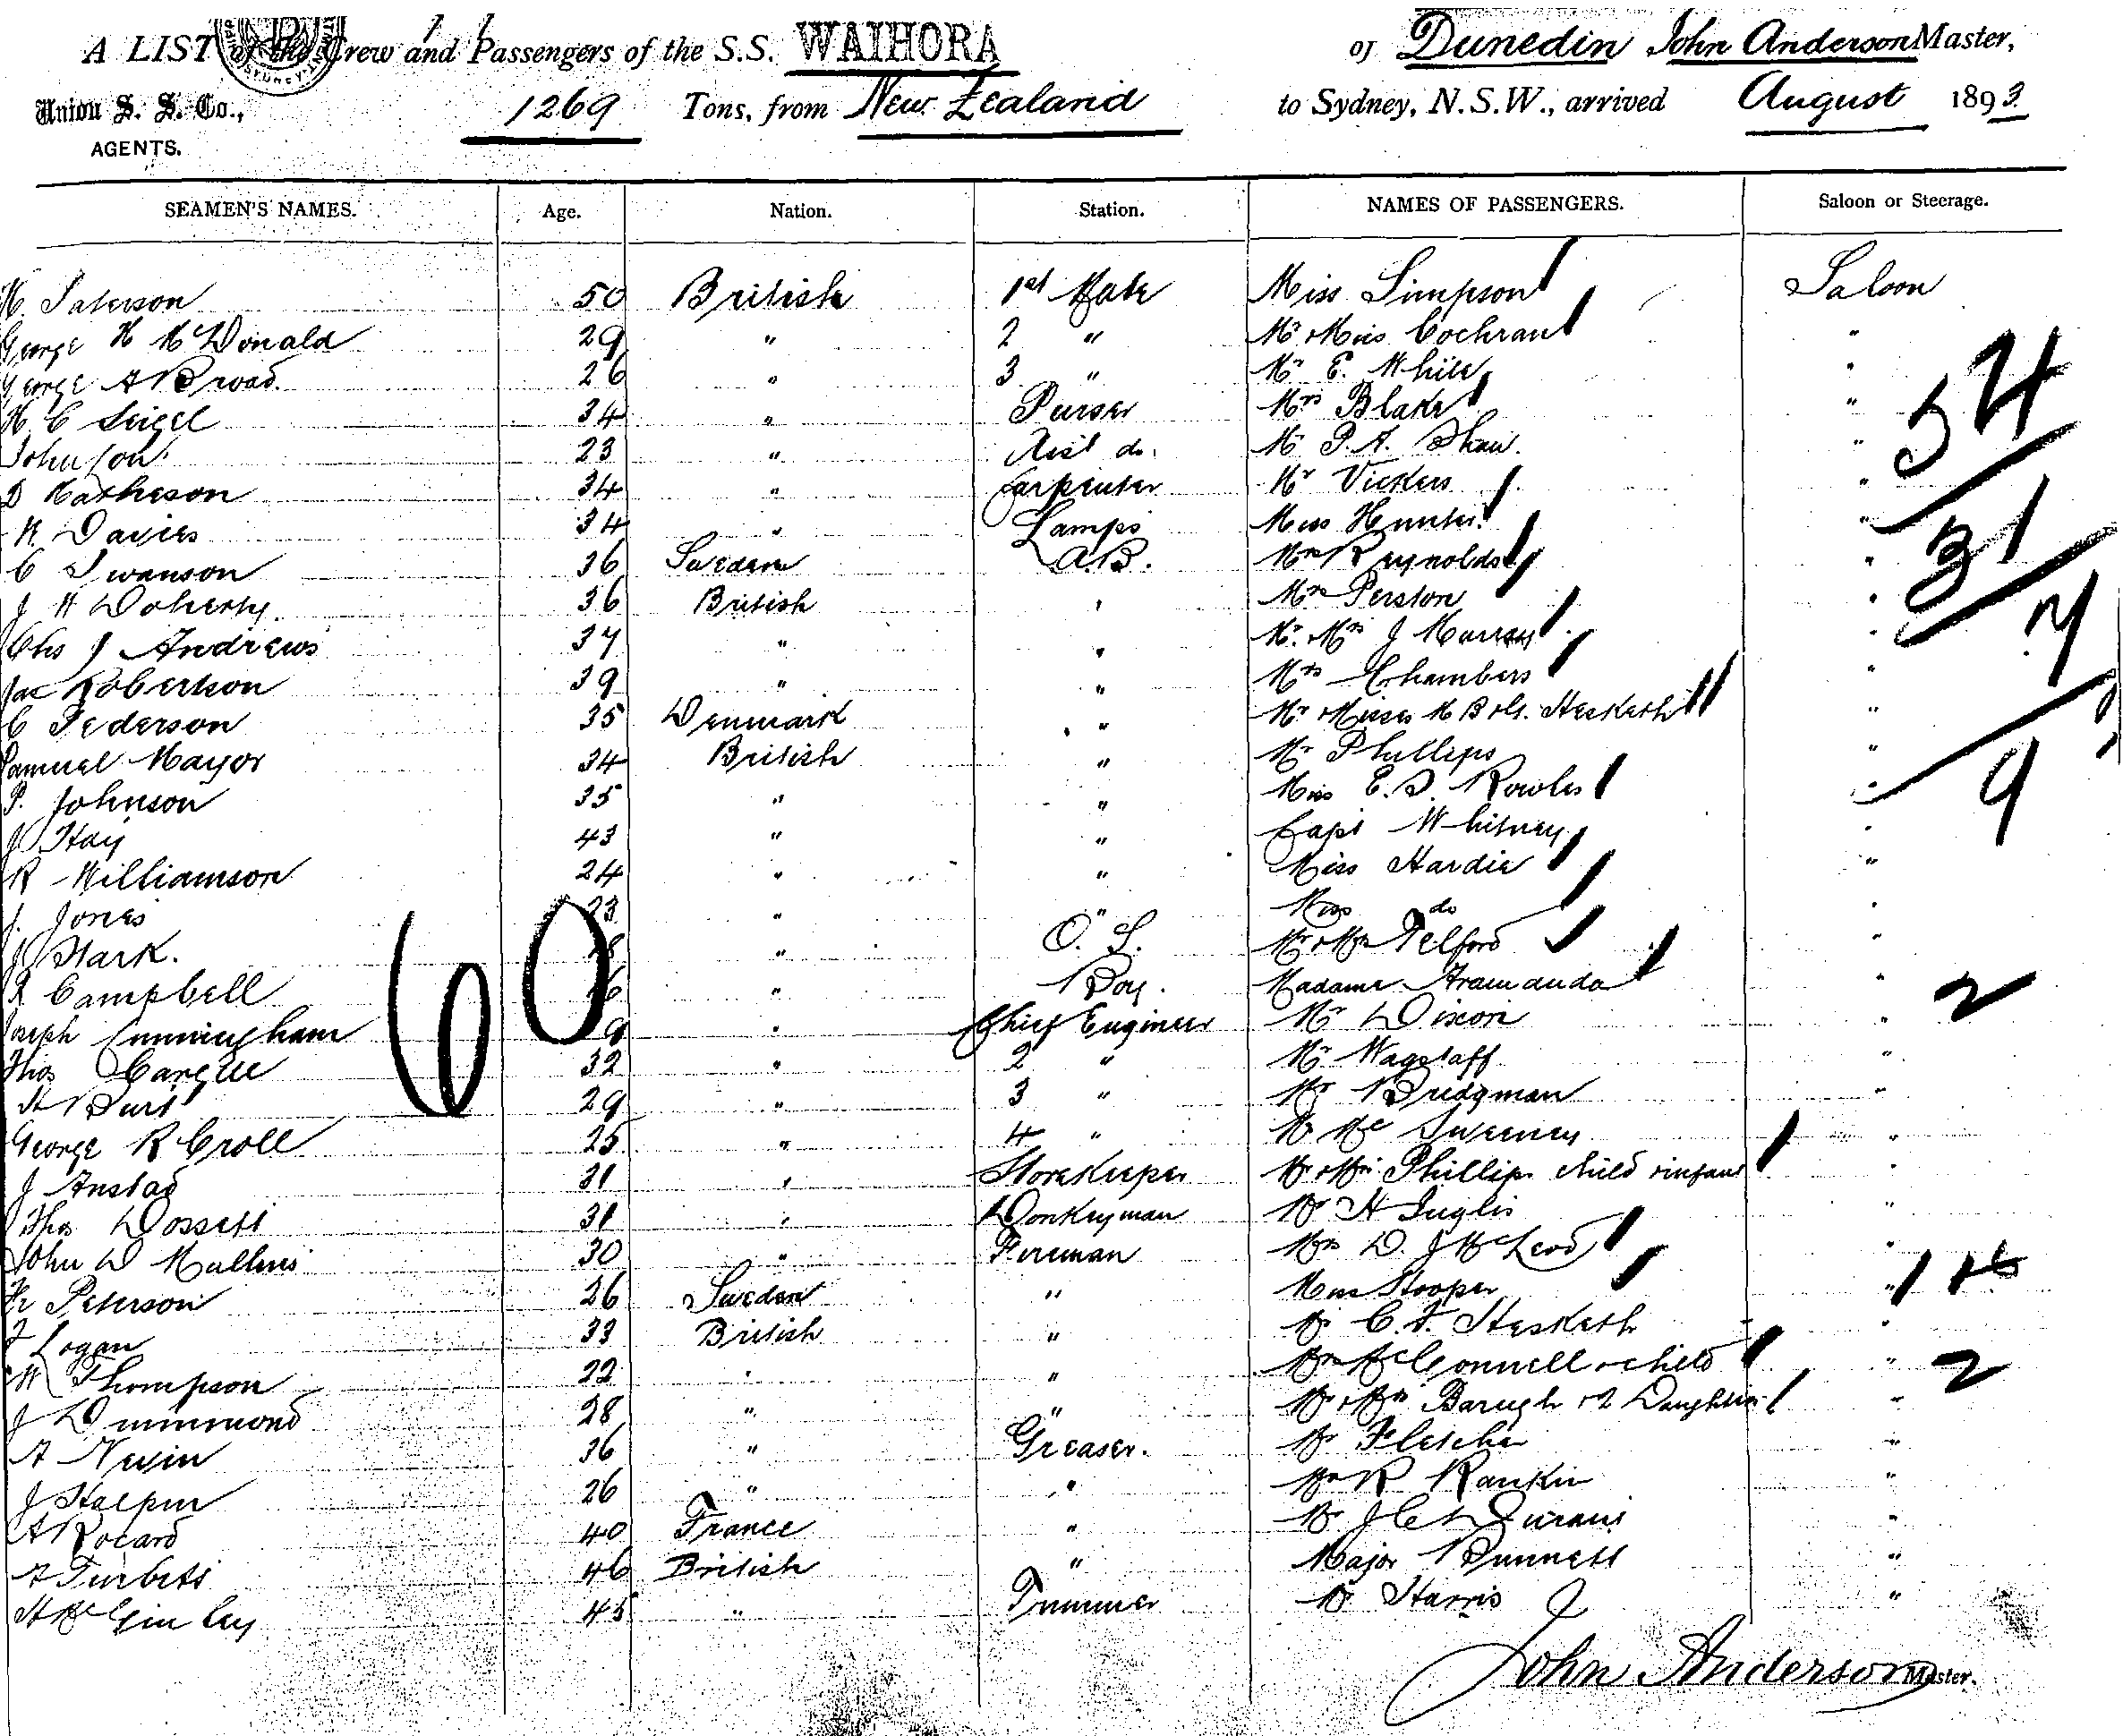 A LIST of the Crew and Passengers of the S.S. WAIHORA of Dunedin John Anderson Master,
Union S. S. Co., 1269 Tons, from New Zealand to Sydney, N.S.W., arrived August 1893
AGENTS.
SEAMEN'S NAMES. Age. Nation. Station. NAMES OF PASSENGERS. Saloon or Steerage.
Paterson 50 British 1st Mate Miss Simpson Saloon
George H McDonald 29 " 2 " Mr & Miss Cochran "
George A Broad 26 " 3 " Mr E. White "
H C Seigel 34 " Purser Mrs Blake "
John 23 " Asst do. Mr P. A. Shaw. "
D Matheson 34 " Carpenter Mr Vickers "
Davies 34 " Lamps Miss Hunter "
C Swanson 36 Sweden A.B. Mrs Reynolds "
J H Doherty. 36 British " Mrs Perston "
Chs J Andrews 37 " " Mr & Mrs J Murray "
Jas Robertson 39 " " Mrs Chambers "
C Pederson 35 Denmark " Mr & Misses Hesketh "
Samuel Mayor 34 British " Mr Phillips "
P. Johnson 35 " " Miss E. D. Rowles "
J Hay 43 " " Capt Whitney "
R Williamson 24 " " Miss Hardie "
J. Jones 23 " " Miss do "
J Stark. " O. S. Mr & Mrs Telford "
R Campbell " Boy. Madame "
Joseph Cunningham " Chief Engineer Mr Dixon "
Thos Cargill 32 " 2 " Mr Wagstaff "
A Burt 29 " 3 " Mr Bridgman "
George R Croll 25 " 4 " Mr Mc Sweeney "
J Anstad 31 " Storekeeper Mr & Mrs Phillips child & infant "
Thos Dossett 31 " Donkeyman Mr H Inglis "
John D Mullins 30 " Fireman Mrs D. J McLeod "
Fr Peterson 26 Sweden " Miss Hooper "
Logan 33 British " Mr C. F. Hesketh "
W Thompson 22 " " Mrs McConnell & child "
J Dummond 28 " " Mr & Mrs Barugh & 2 Daughters "
A Nevin 36 " Greaser. Mr Fletcher "
J Halpin 26 " " Mr R Rankin "
A Rocard 40 France " Mr J C Durant "
A Turbett 46 British " Major Bunnett "
H McGinley 45 " Trimmer Mr Harris "
60
54
31
7
9
2
2
John Anderson Master.